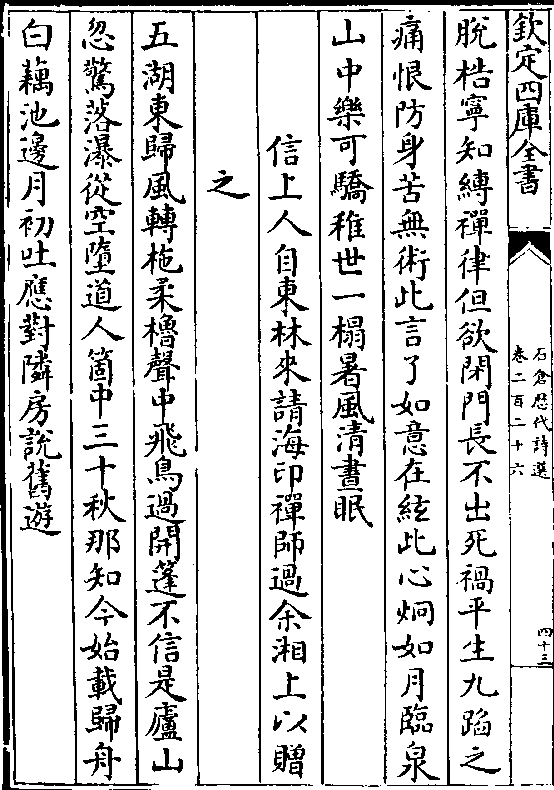 欽定四庫全書
石倉歷代詩選
卷二百二十六
四十三
脫梏寧知縛禪律但欲閉門長不出死禍平生九蹈之
痛恨防身苦無術此言了如意在絃此心炯如月臨泉
山中樂可驕稚世一榻暑風清晝眠
信上人自東林來請海印禪師過余湘上以贈
之
五湖東歸風轉柂柔櫓聲中飛鳥過開蓬不信是廬山
忽驚落瀑從空墮道人箇中三十秋那知今始載歸舟
白藕池邊月初吐應對隣房說舊遊